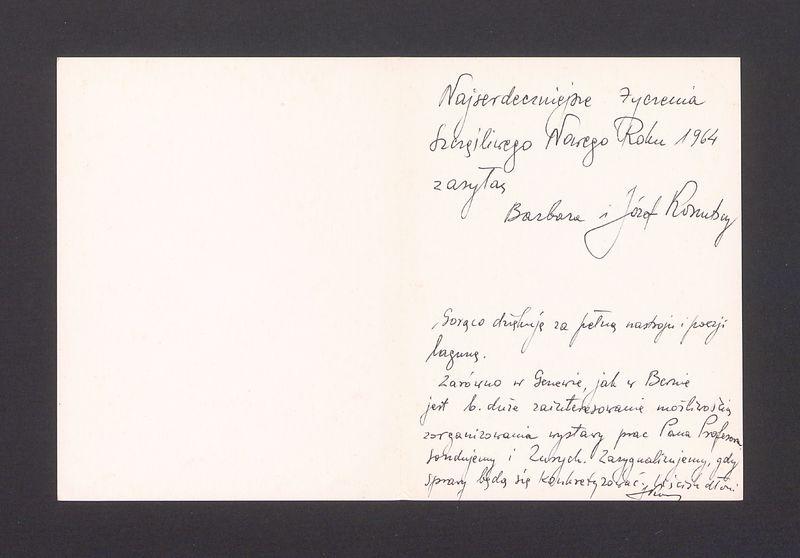 Najserdeczniejsze życzenia
Szczęśliwego Nowego Roku 1964
zasyłają
Barbara i Józef
Gorąco dziękuję za pełną nastroju i poezji
lagunę.
Zarówno w Genewie, jak w Bernie
jest b. duże zainteresowanie możliwością
zorganizowania wystawy prac Pana Profesora
Sondujemy i Zurych. Zasygnalizujemy, gdy
sprawy będą się konkretyzować. Uścisk dłoni